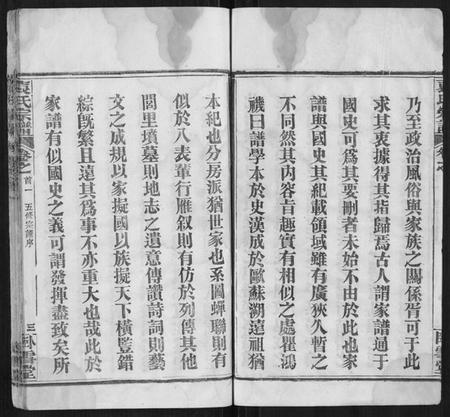 乃至政治風俗與家族之關係胥可于此
求其衷據得其指歸焉古人謂家譜通于
國史可爲其要刪者未始不由於此也家
譜與國史其紀載領域雖有廣狹久暫之
不同然其内容旨趣實有相似之處瞿鴻
禨曰譜學本於史漢成於歐蘇溯遠祖猶
本紀也分房派猶世家也系圖蟬聯則有
似於八表輩行雁叙則有仿於列傳其他
閭里墳墓則地志之遺意傳讚詩詞則藝
文之成規以家擬國以族擬天下橫豎錯
綜既繁且遠其爲事不亦重大也哉此於
家譜有似國史之義可謂發揮盡致矣所
袁氏宗譜
卷之首一
五修宗譜序
三
臥雪堂